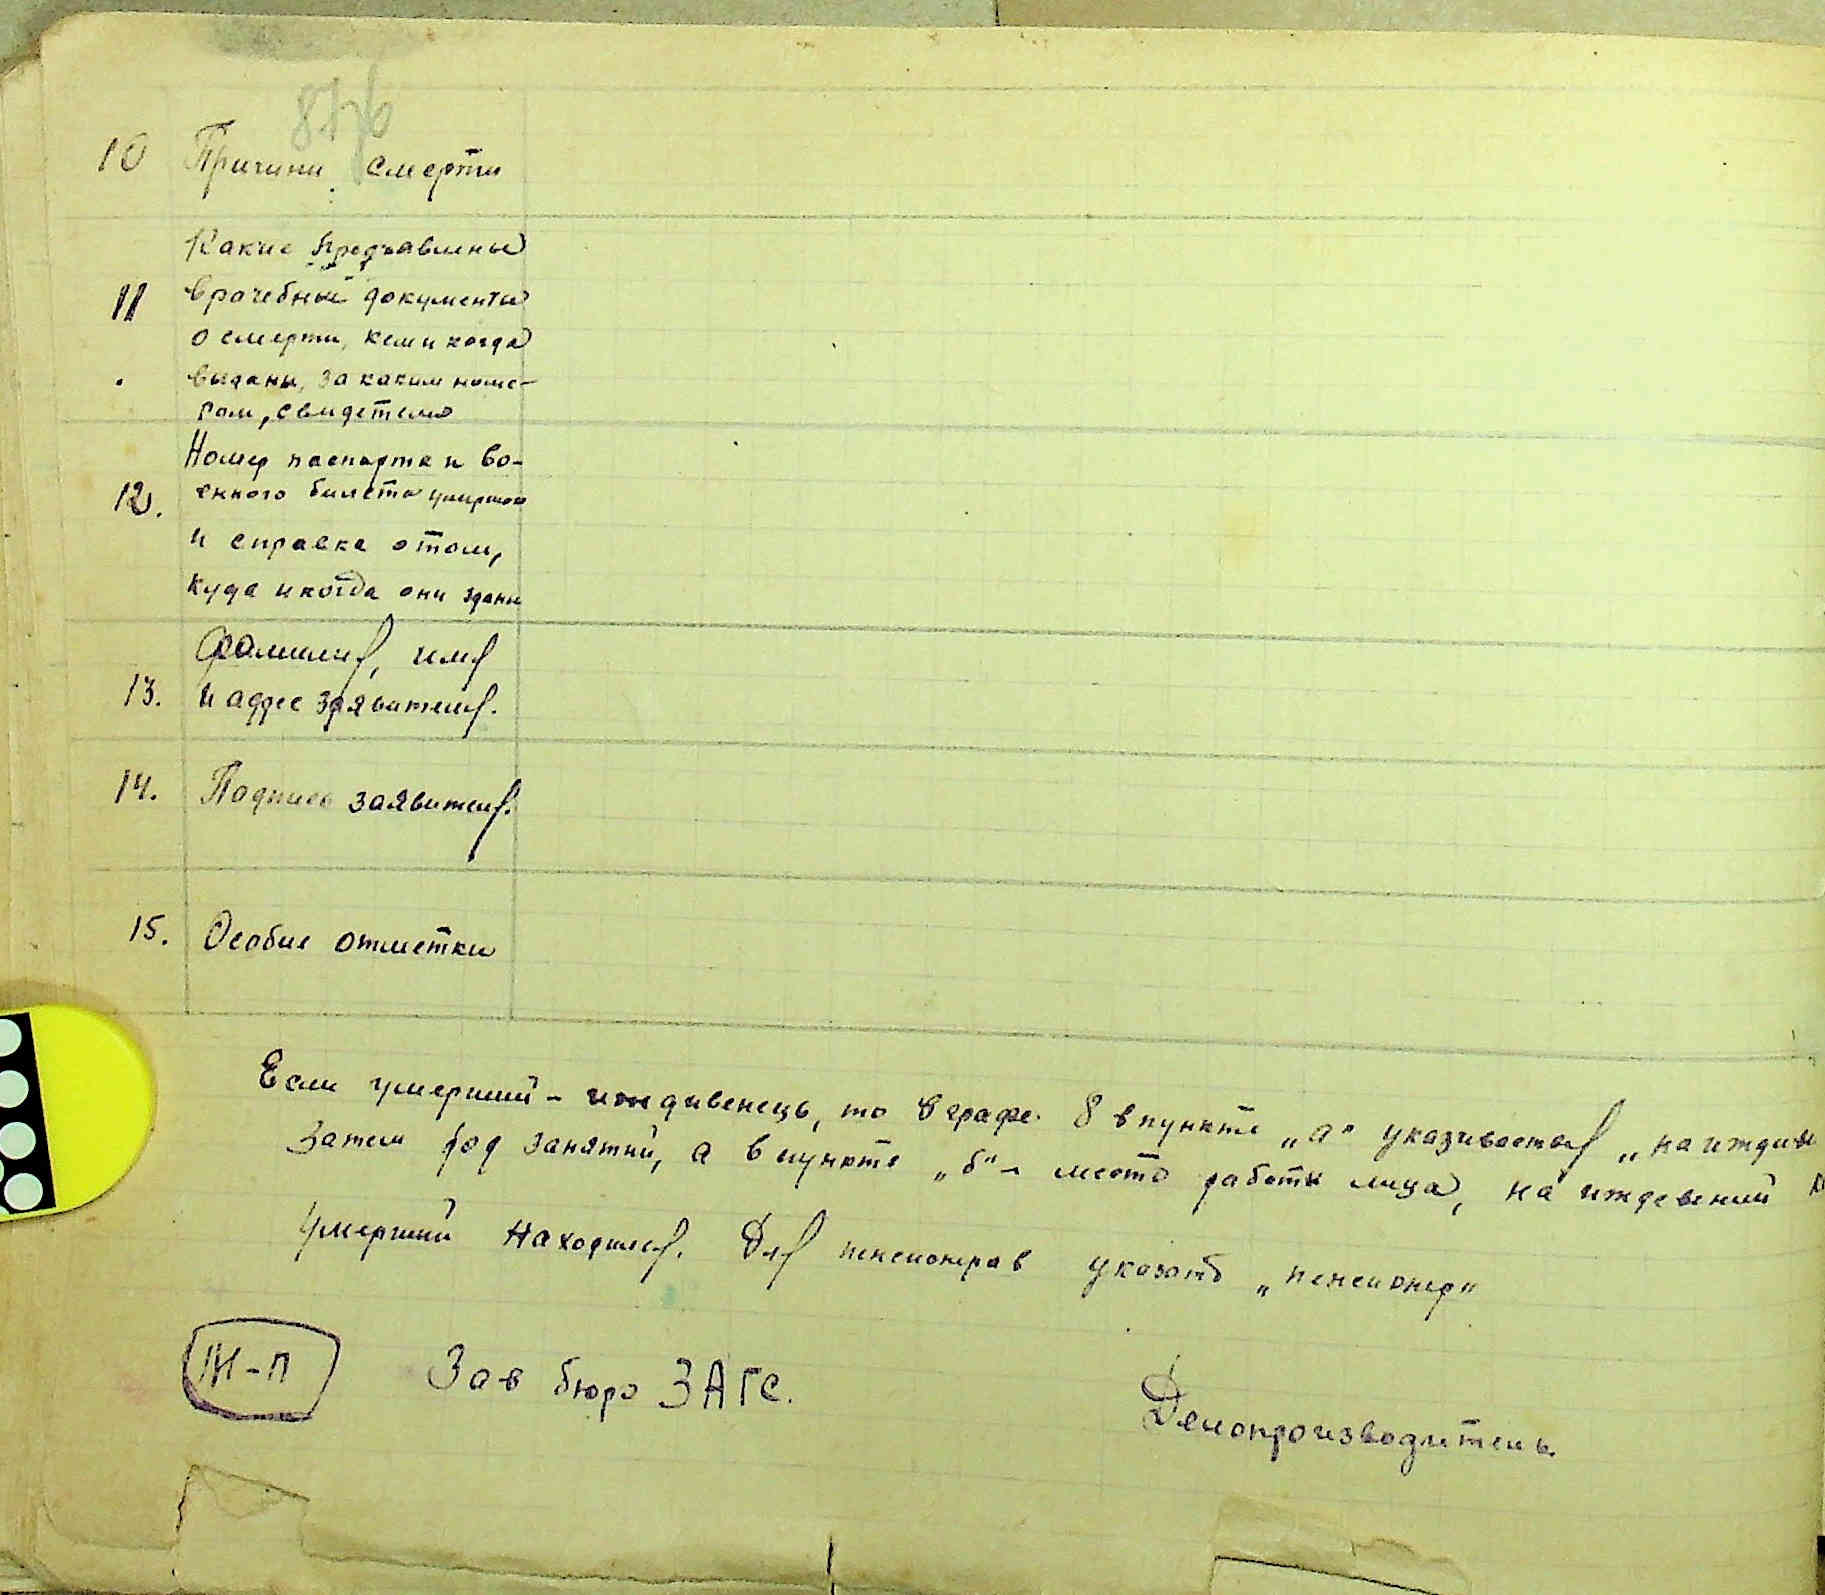 10 Причини смерти
Какие предъавлены
11 врачебный документы
о смерти, кем и когда
выданы, за каким номе-
ром, свидетели
Номер паспорта и во-
12. енного билета умершого
и справка о том,
куда и когда они здани
Фамилия, имя
13. и адрес заявителя.
14. Подпись заявителя.
15. Особие отметки
Если умерший - иждивенець, то в графе 8 в пункте „а" указивается „на иждив
Затем род занятий, а в пункте „б" - место работи лица, на иждевений к
умерший находился. Для пенсионерав указать „пенсионер"
М-П Зав бюро ЗАГС. Делопроизводитель.